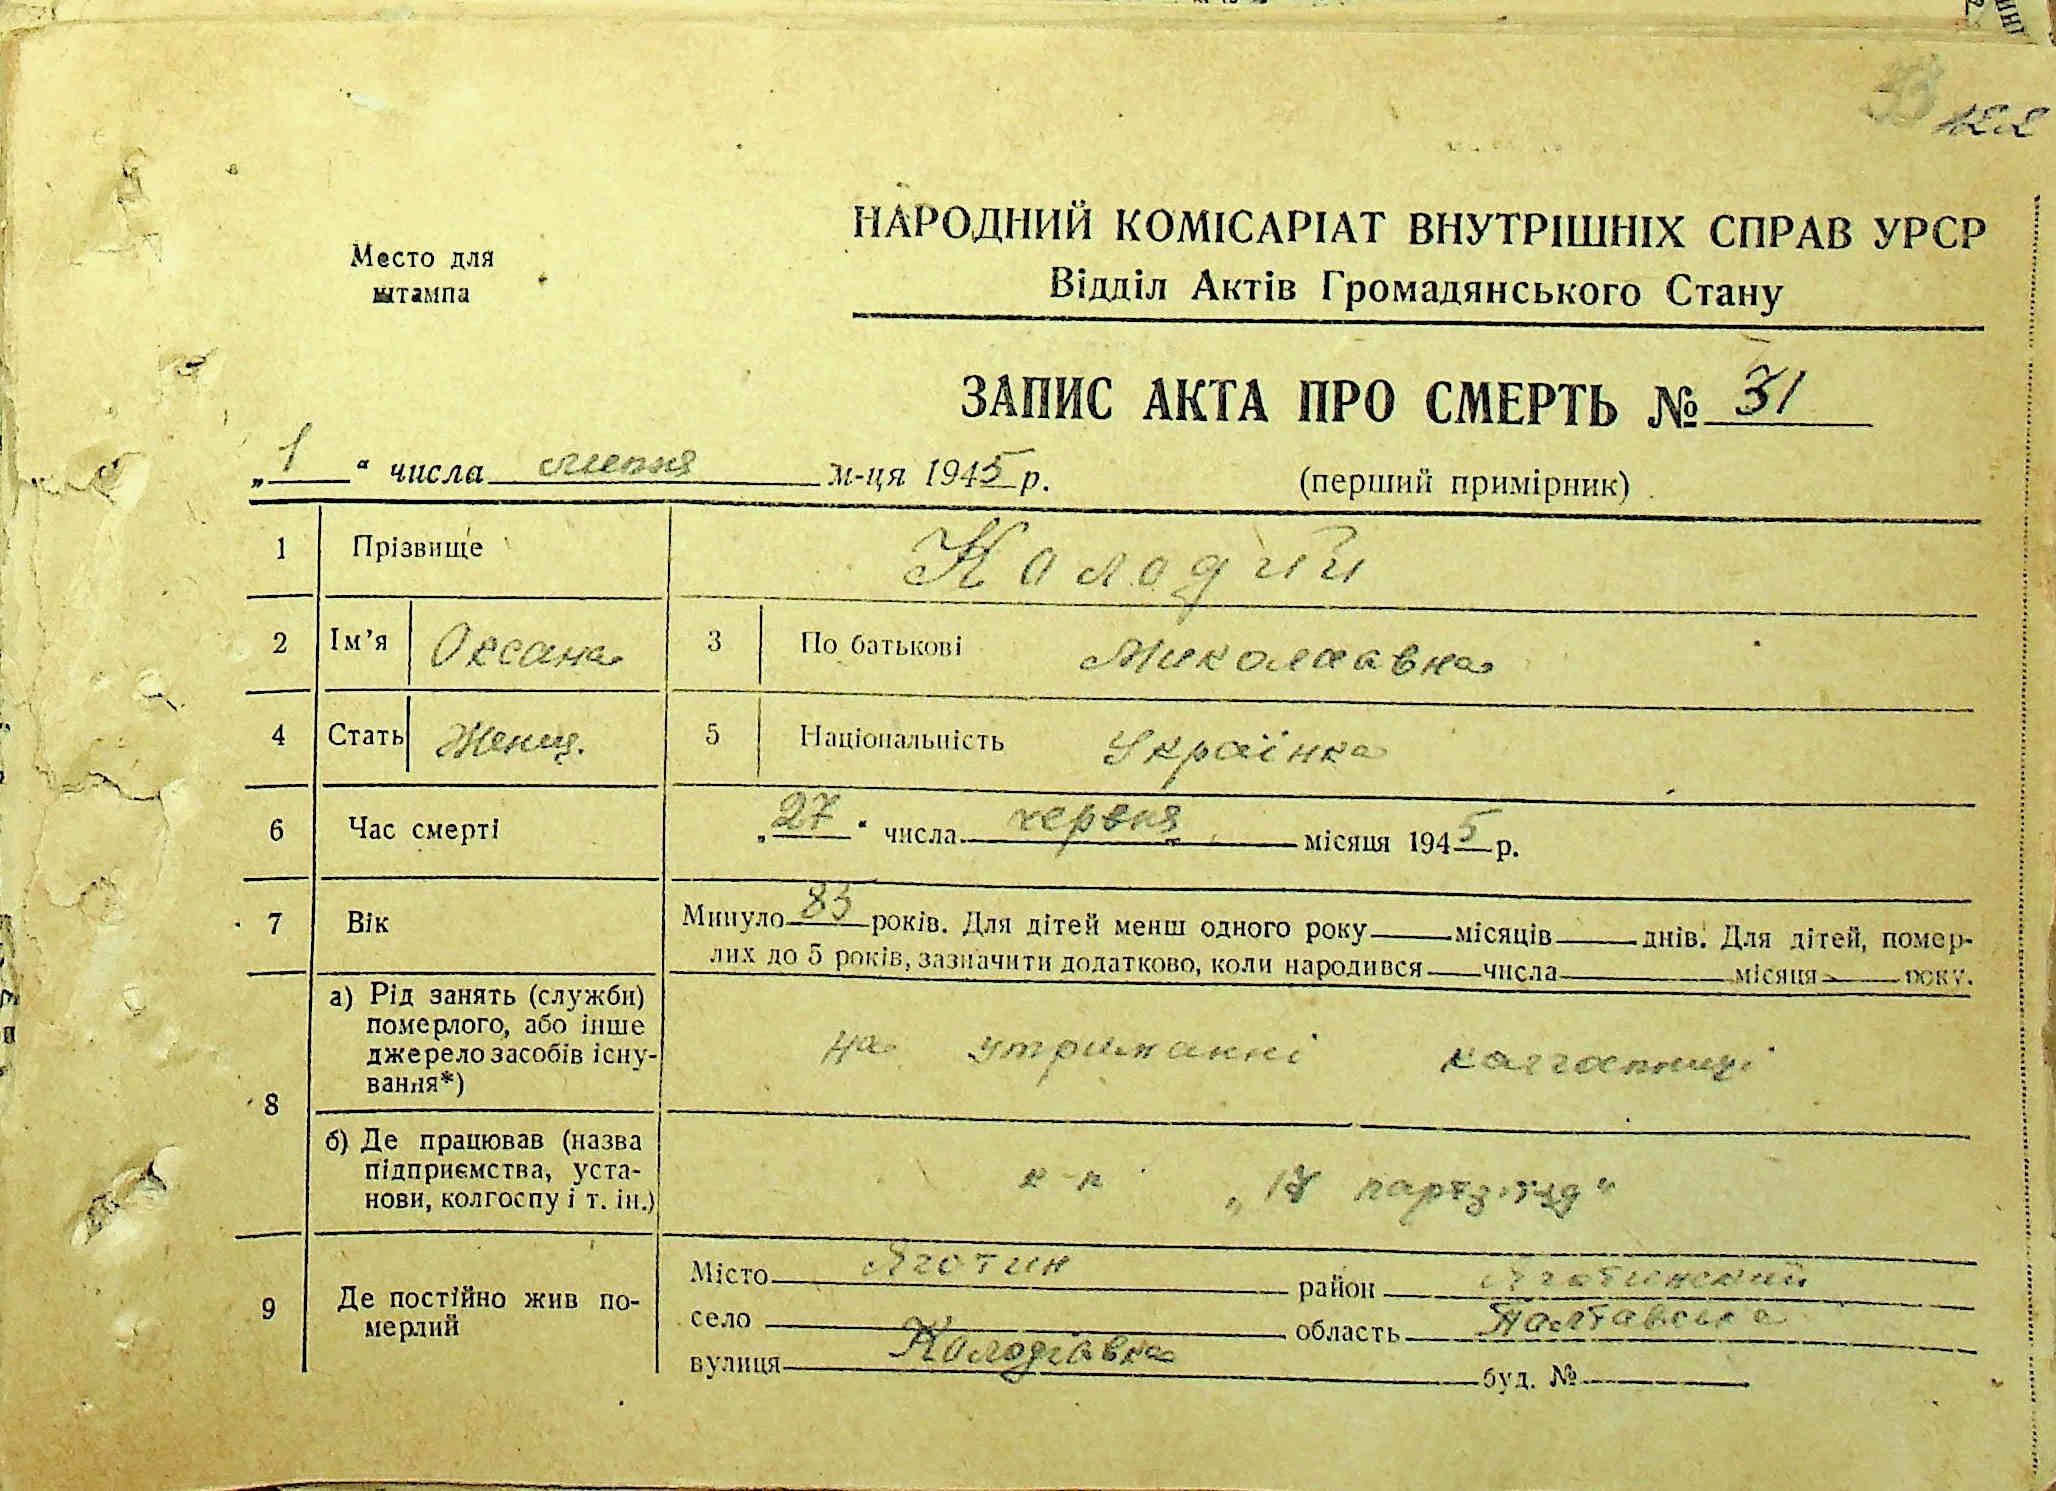 122
Место для
штампа
НАРОДНИЙ КОМІСАРІАТ ВНУТРІШНІХ СПРАВ УРСР
Відділ Актів Громадянського Стану
ЗАПИС АКТА ПРО СМЕРТЬ № 31
„ 1 “ числа липня м-ця 1945 р. (перший примірник)
1 Прізвище Колодий
2 Ім’я Оксана 3 По батькові Миколаавна
4 Стать Женщ. 5 Національність Українка
6 Час смерті „ 27 “ числа червня місяця 1945 р.
7 Вік Минуло 83 років. Для дітей менш одного року місяців днів. Для дітей, помер-
лих до 5 років, зазначити додатково, коли народився числа місяця року.
8 а) Рід занять (служби)
померлого, або інше
джерело засобів існу-
вання*) на утриманні колгоспниці
б) Де працював (назва
підприємства, уста-
нови, колгоспу і т. ін.) к-п „18 партз'їзд“
9 Де постійно жив по-
мерлий
Місто Яготин район Яготинский
село область Полтавська
вулиця Колодіавка буд. №